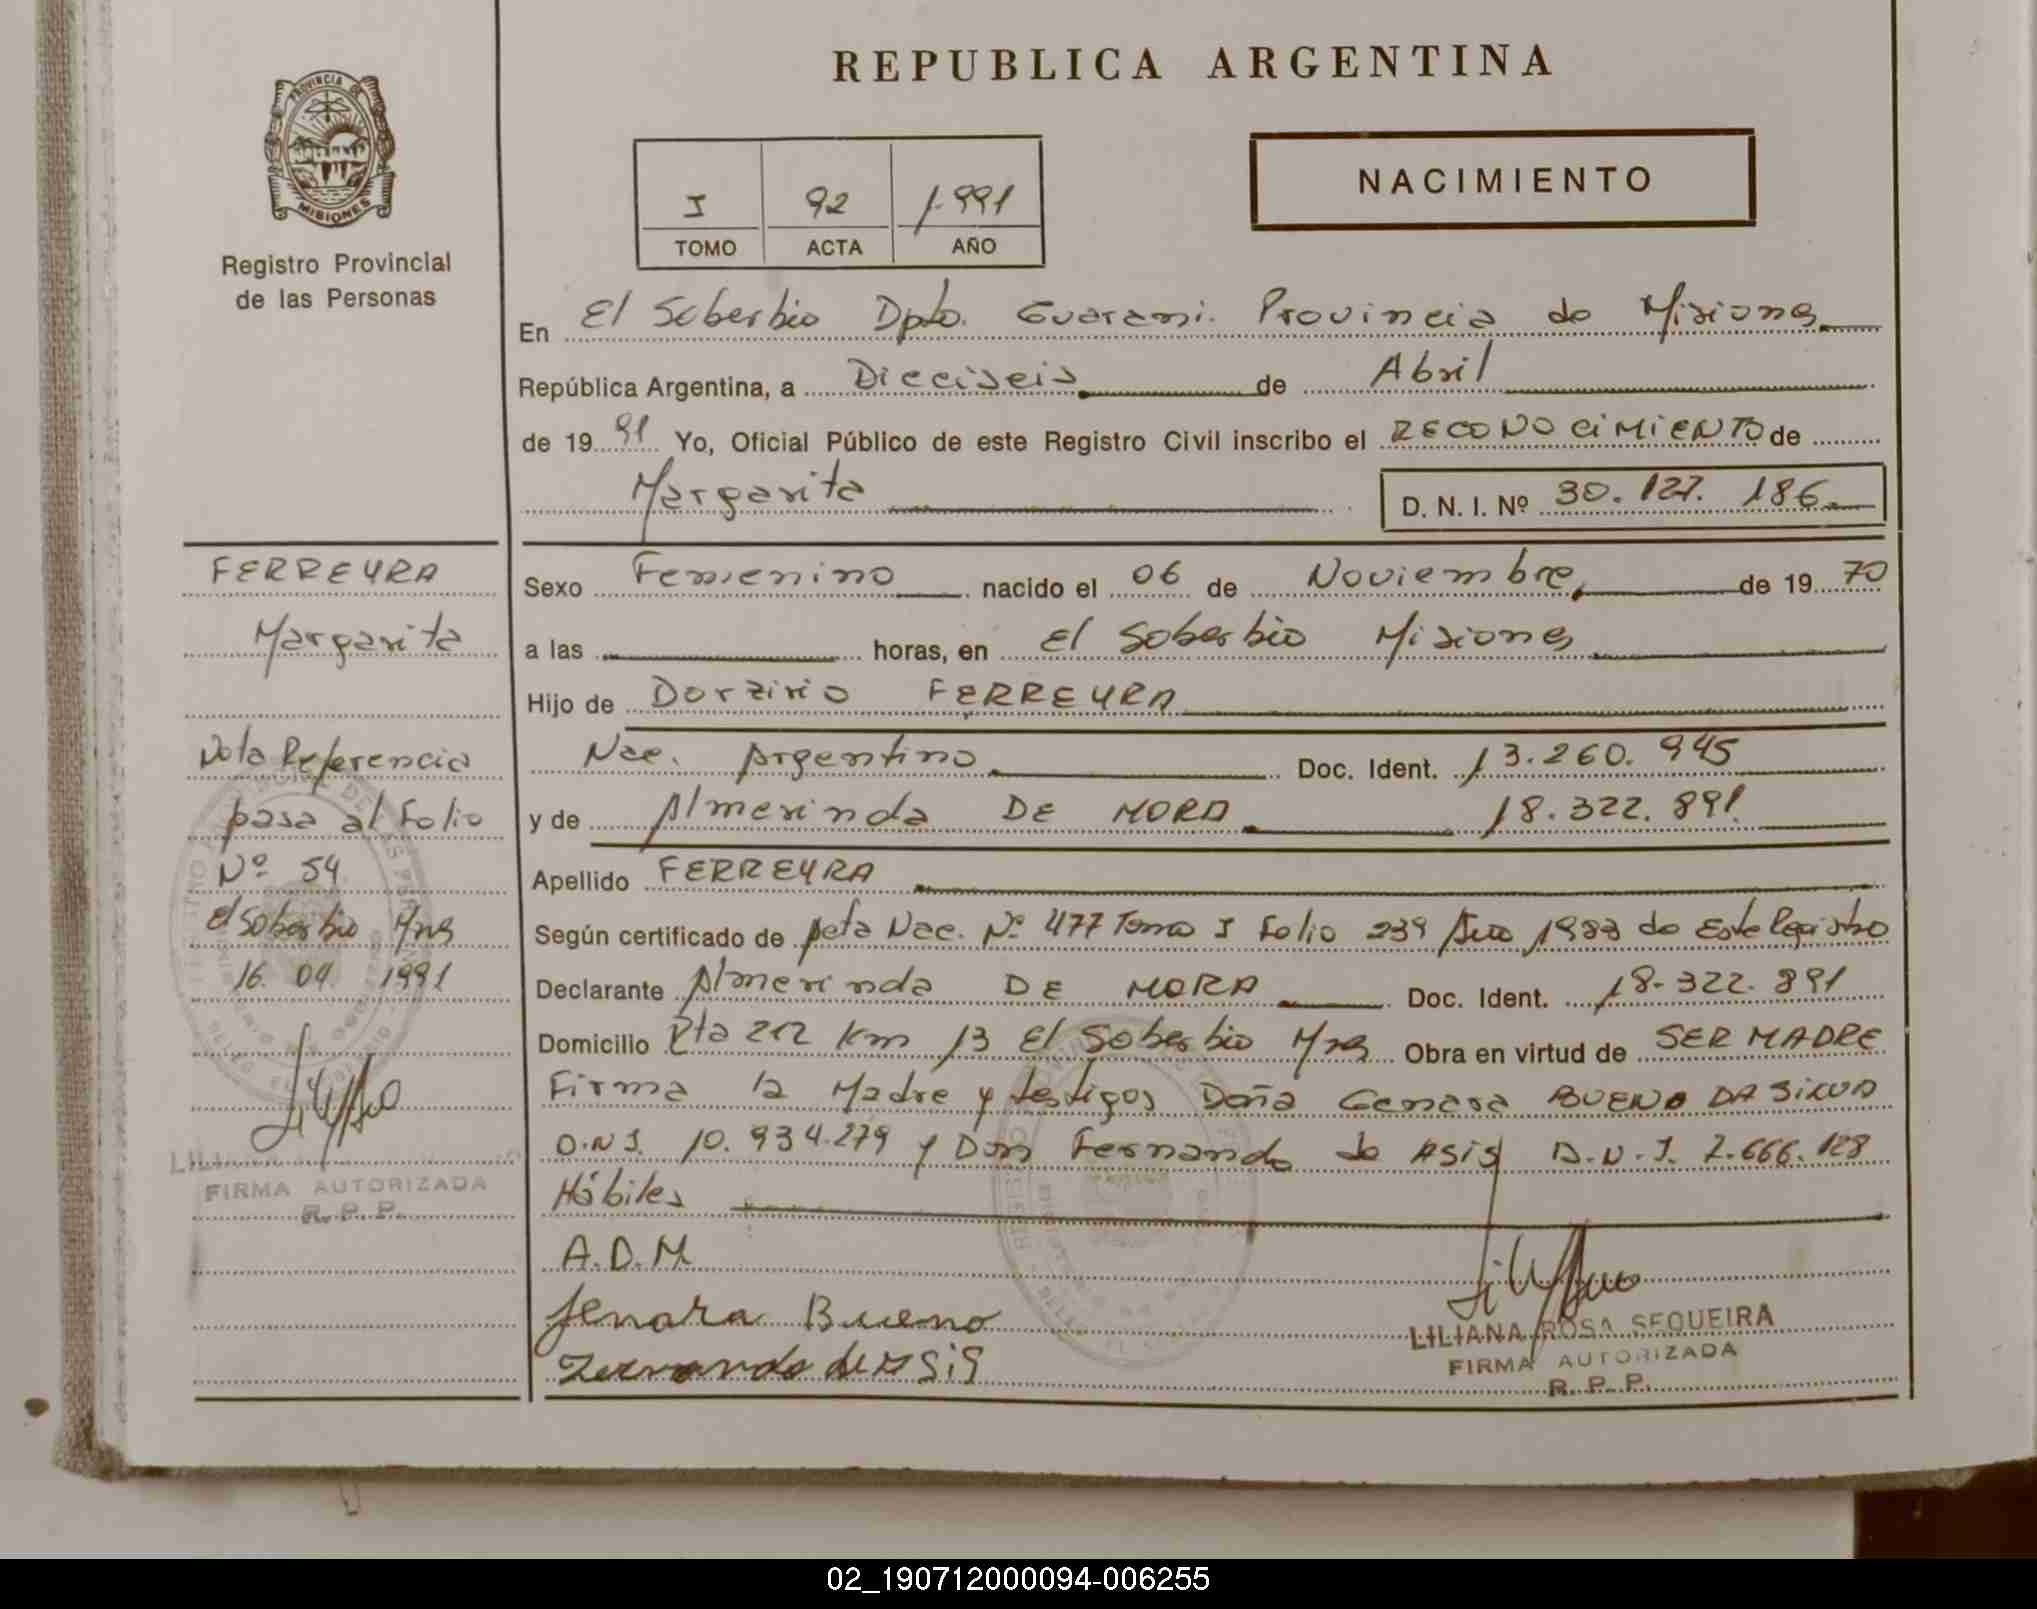 REPUBLICA ARGENTINA
PROVINCIA DE
MISIONES
Registro Provincial
de las Personas
I 92 1.991
TOMO ACTA AÑO
NACIMIENTO
En El Soberbio Dpto. Guarani. Provincia de Misiones
República Argentina, a Dieciseis de Abril
de 1991 Yo, Oficial Público de este Registro Civil inscribo el RECONOCIMIENTO de
Margarita D. N. I. Nº 30.127.186
FERREYRA
Margarita
Nota Referencia
pasa al Folio
Nº 54
El Soberbio Mnes
16. 04 1991
FIRMA AUTORIZADA
R. P. P.
Sexo Femenino nacido el 06 de Noviembre, de 1970
a las horas, en El Soberbio Misiones
Hijo de Dorzirio FERREYRA
Nac. Argentino Doc. Ident. 13.260.945
y de Almerinda DE MORA 18.322.891
Apellido FERREYRA
Según certificado de Acta Nac. Nº 477 Tomo I Folio 239 Año de Este Registro
Declarante Almerinda DE MORA Doc. Ident. 18.322.891
Domicilio Rta 212 Km 13 El Soberbio Mnes Obra en virtud de SER MADRE
Firma la Madre y testigos Doña Genara BUENO DA SILVA
D.N.I. 10.934.279 y Don Fernando de ASIS D.N.I. 7.666.128
Hábiles
A.D.M
Jenara Bueno
Fernando de asis
LILIANA ROSA SEQUEIRA
FIRMA AUTORIZADA
R. P. P.
02_190712000094-006255